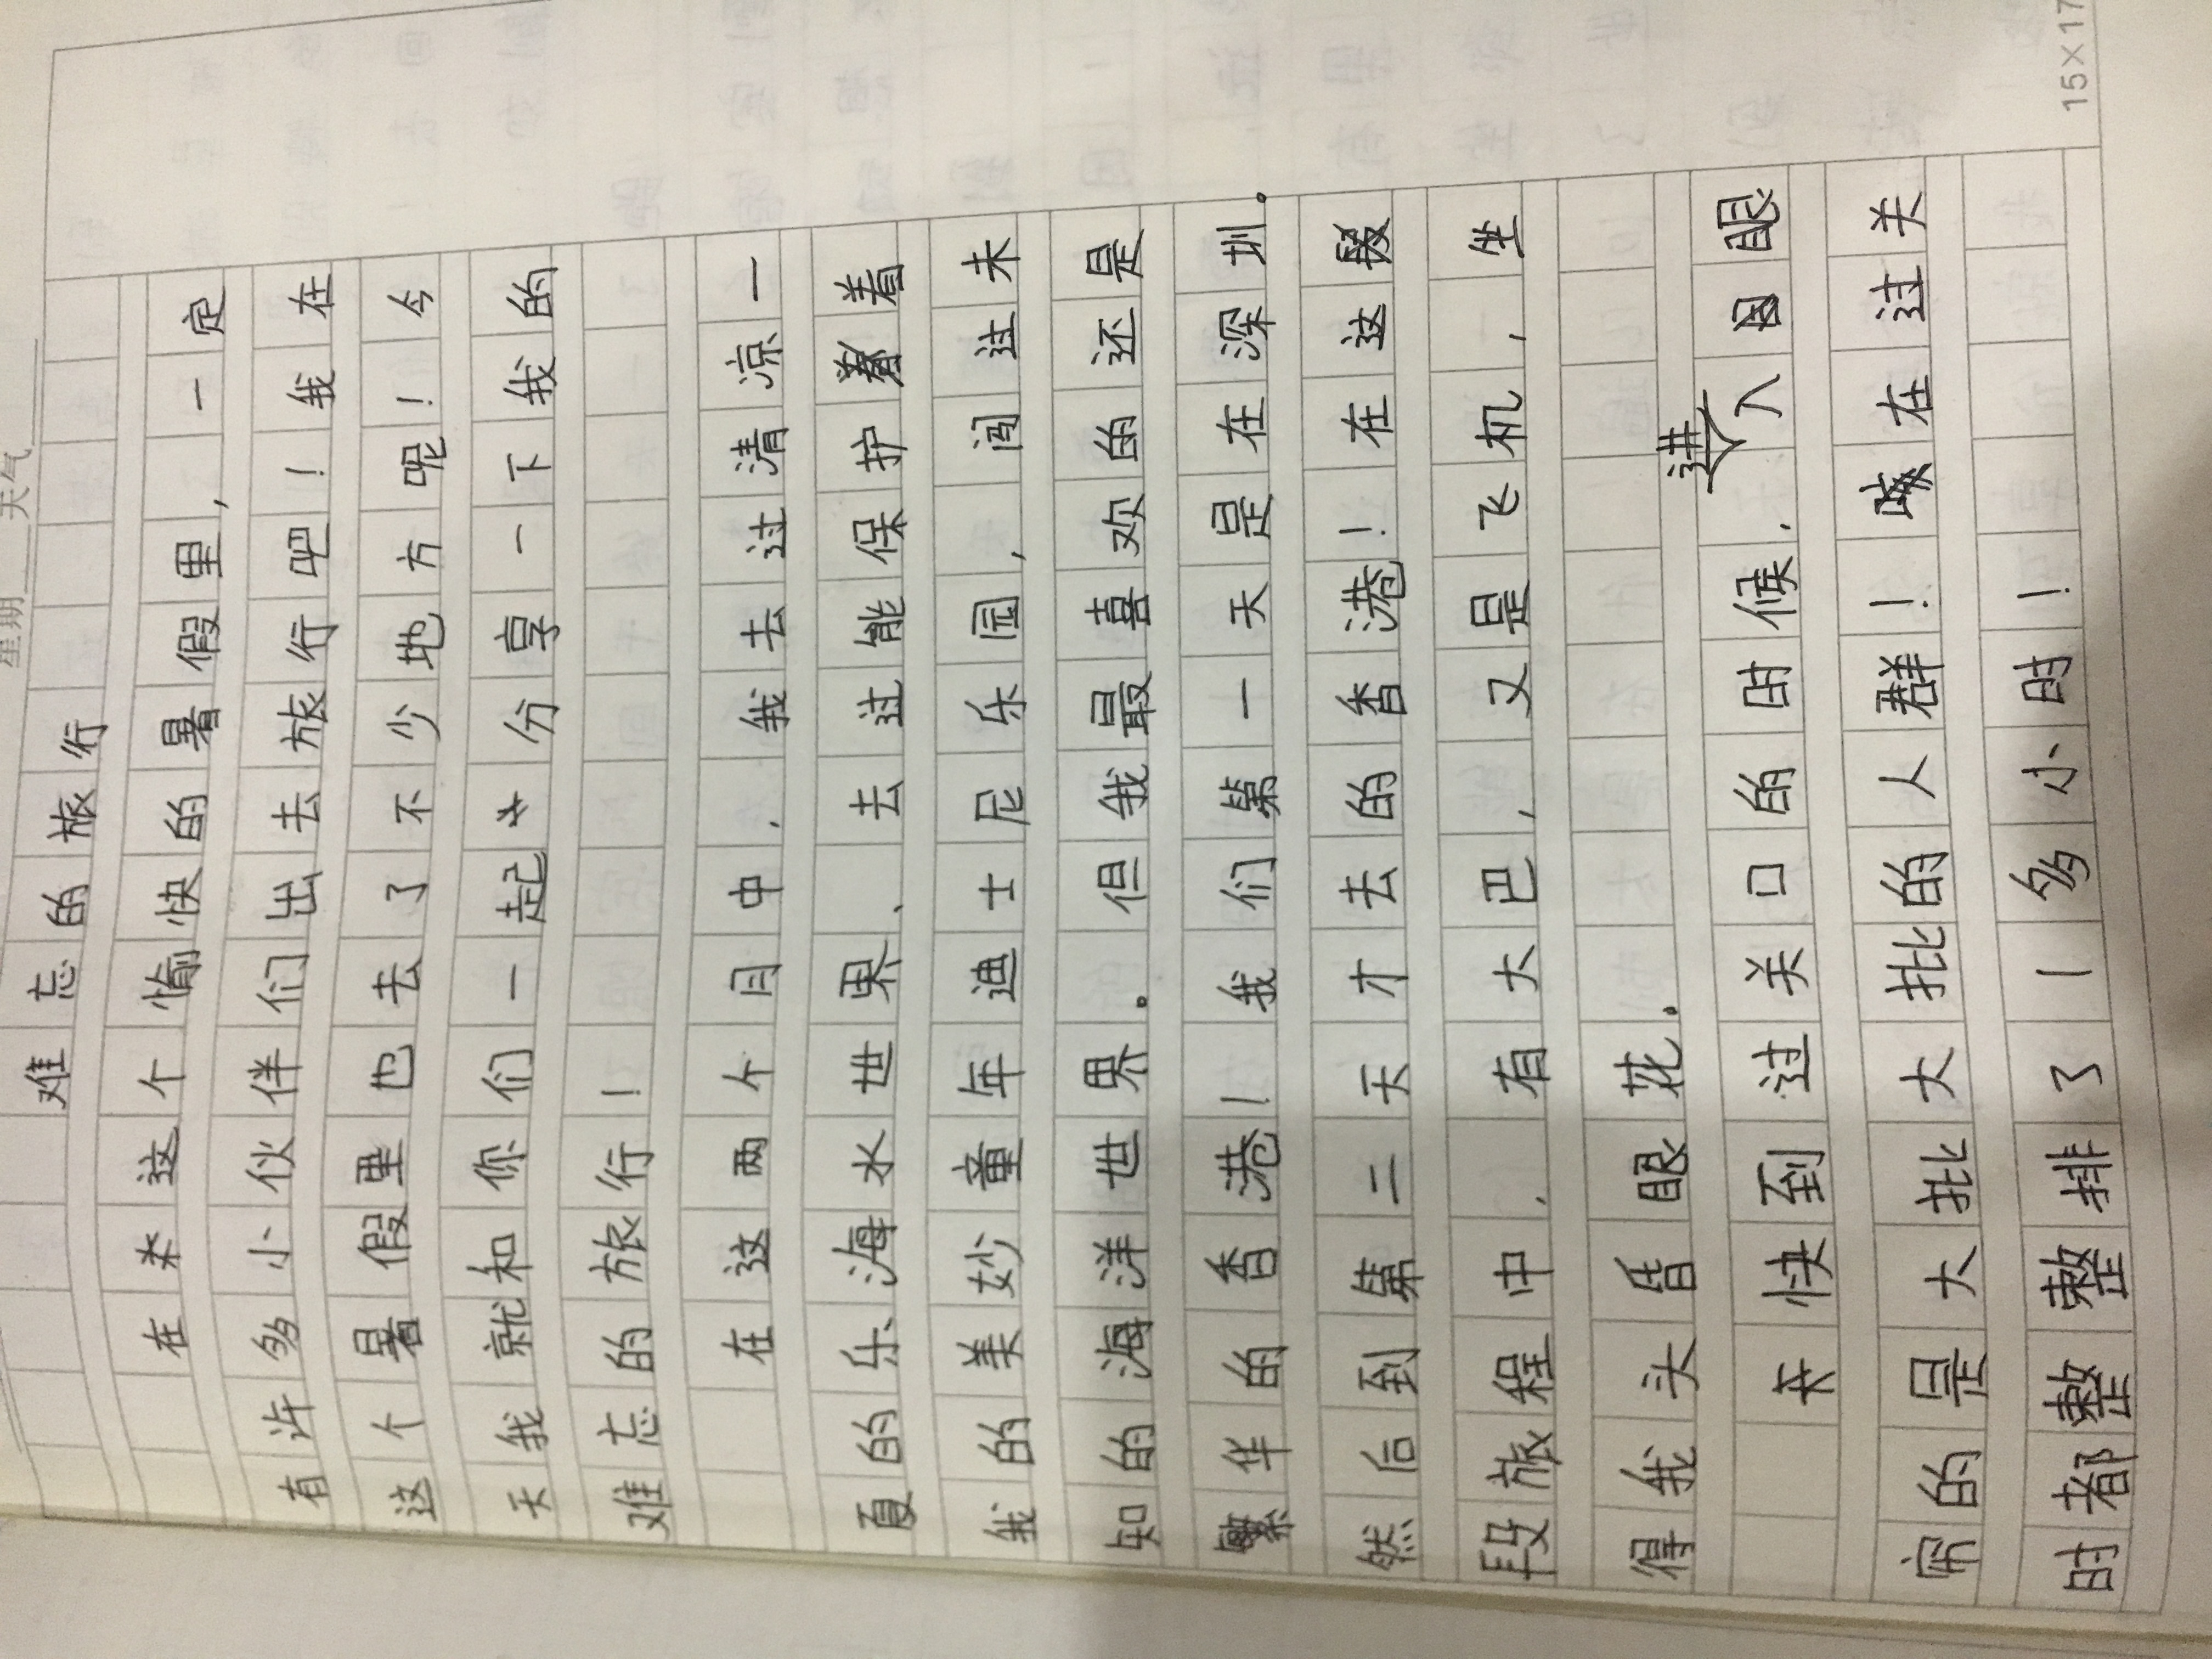 星期 天气
难忘的旅行
在来这个愉快的暑假里,一定
有许多小伙伴们出去旅行吧!我在
这个暑假里也去了不少地方呢!今
天我就和你们一起分享一下我的
难忘的旅行!
在这两个月中,我去过清凉一
夏的乐海水世界、去过能保护着
我的美妙童年迪士尼乐园,闯过未
知的海洋世界。但我最喜欢的还是
繁华的香港!我们第一天是在深圳。
然后到第二天才去的香港!在这
段旅程中,有大巴,又是飞机,坐
得我头昏眼花。
快到过关口的时候,进入眼
帘的是大批大批的人群!在过关
时都整整排了1多小时!
15×17